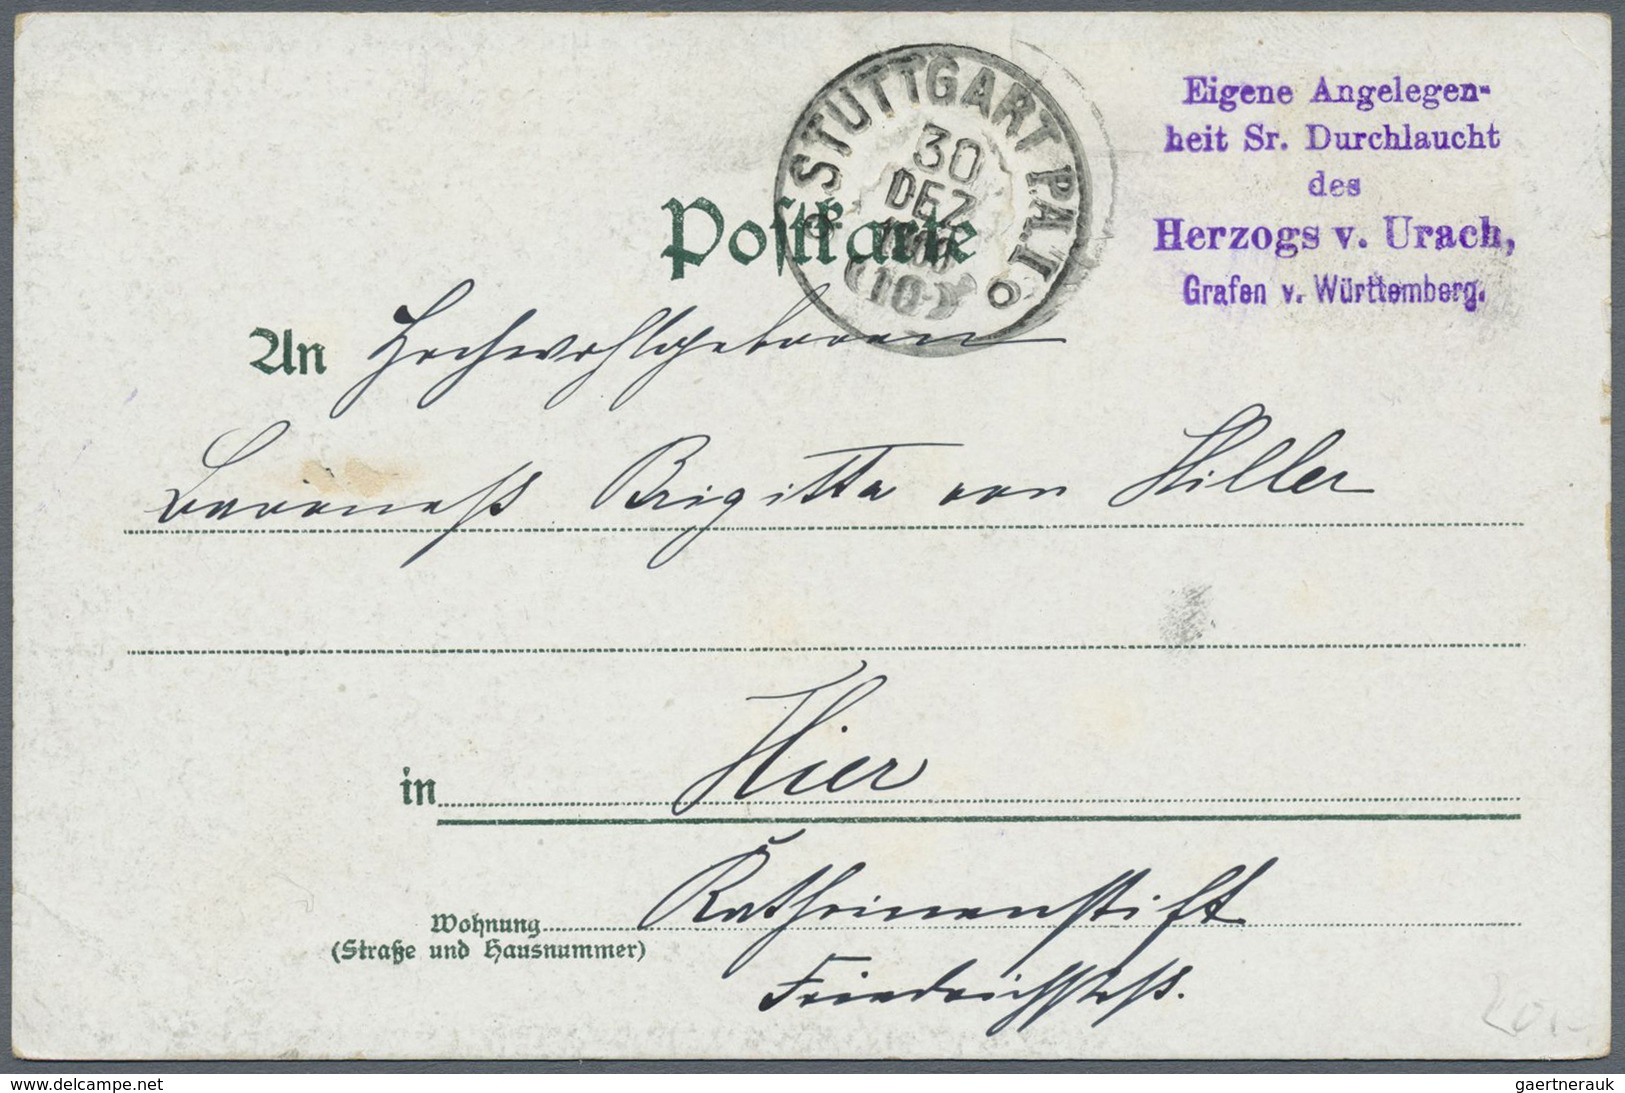 STUTTGART P.A.I
30
DEZ
Eigene Angelegen-
heit Sr. Durchlaucht
des
Herzogs v. Urach,
Grafen v. Württemberg.
Postkarte
An Hochwohlgeboren
Baroness Brigitta von Hiller
in Hier
Wohnung Katharinenstift
(Straße und Hausnummer)
Friedrichstraß.
20.-
delcampe.net
gaertnerauk